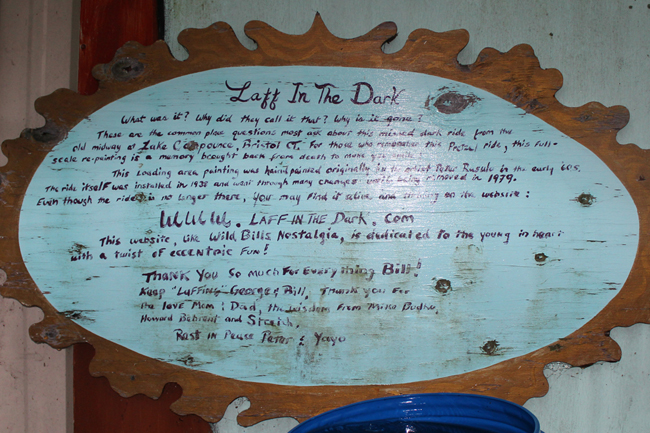 Laff In The Dark
What was it? Why did they call it that? Why is it gone?
These are the common place questions most ask about this missed dark ride from the
old midway at Lake Compounce, Bristol CT. For those who remember this Pretzel ride, this full-
scale re-painting is a memory brought back from death to make you smile.
This Loading area painting was hand painted originally by the artist Peter Rusulo in the early '60s.
The ride itself was installed in 1938 and went through many changes until being removed in 1979.
Even though the ride is no longer there, you may find it alive and on the website:
WWW. LAFF-IN THE Dark. Com
This website, like Wild Bills Nostalgia, is dedicated to the young in heart
with a twist of eccentric Fun!
Thank You So much For Everything Bill!
Keep "Laffing" George & Bill, Thank you For
the love Mom & Dad, the wisdom From Mike
Howard Behrent and
Rest in Peace Peter & Yayo